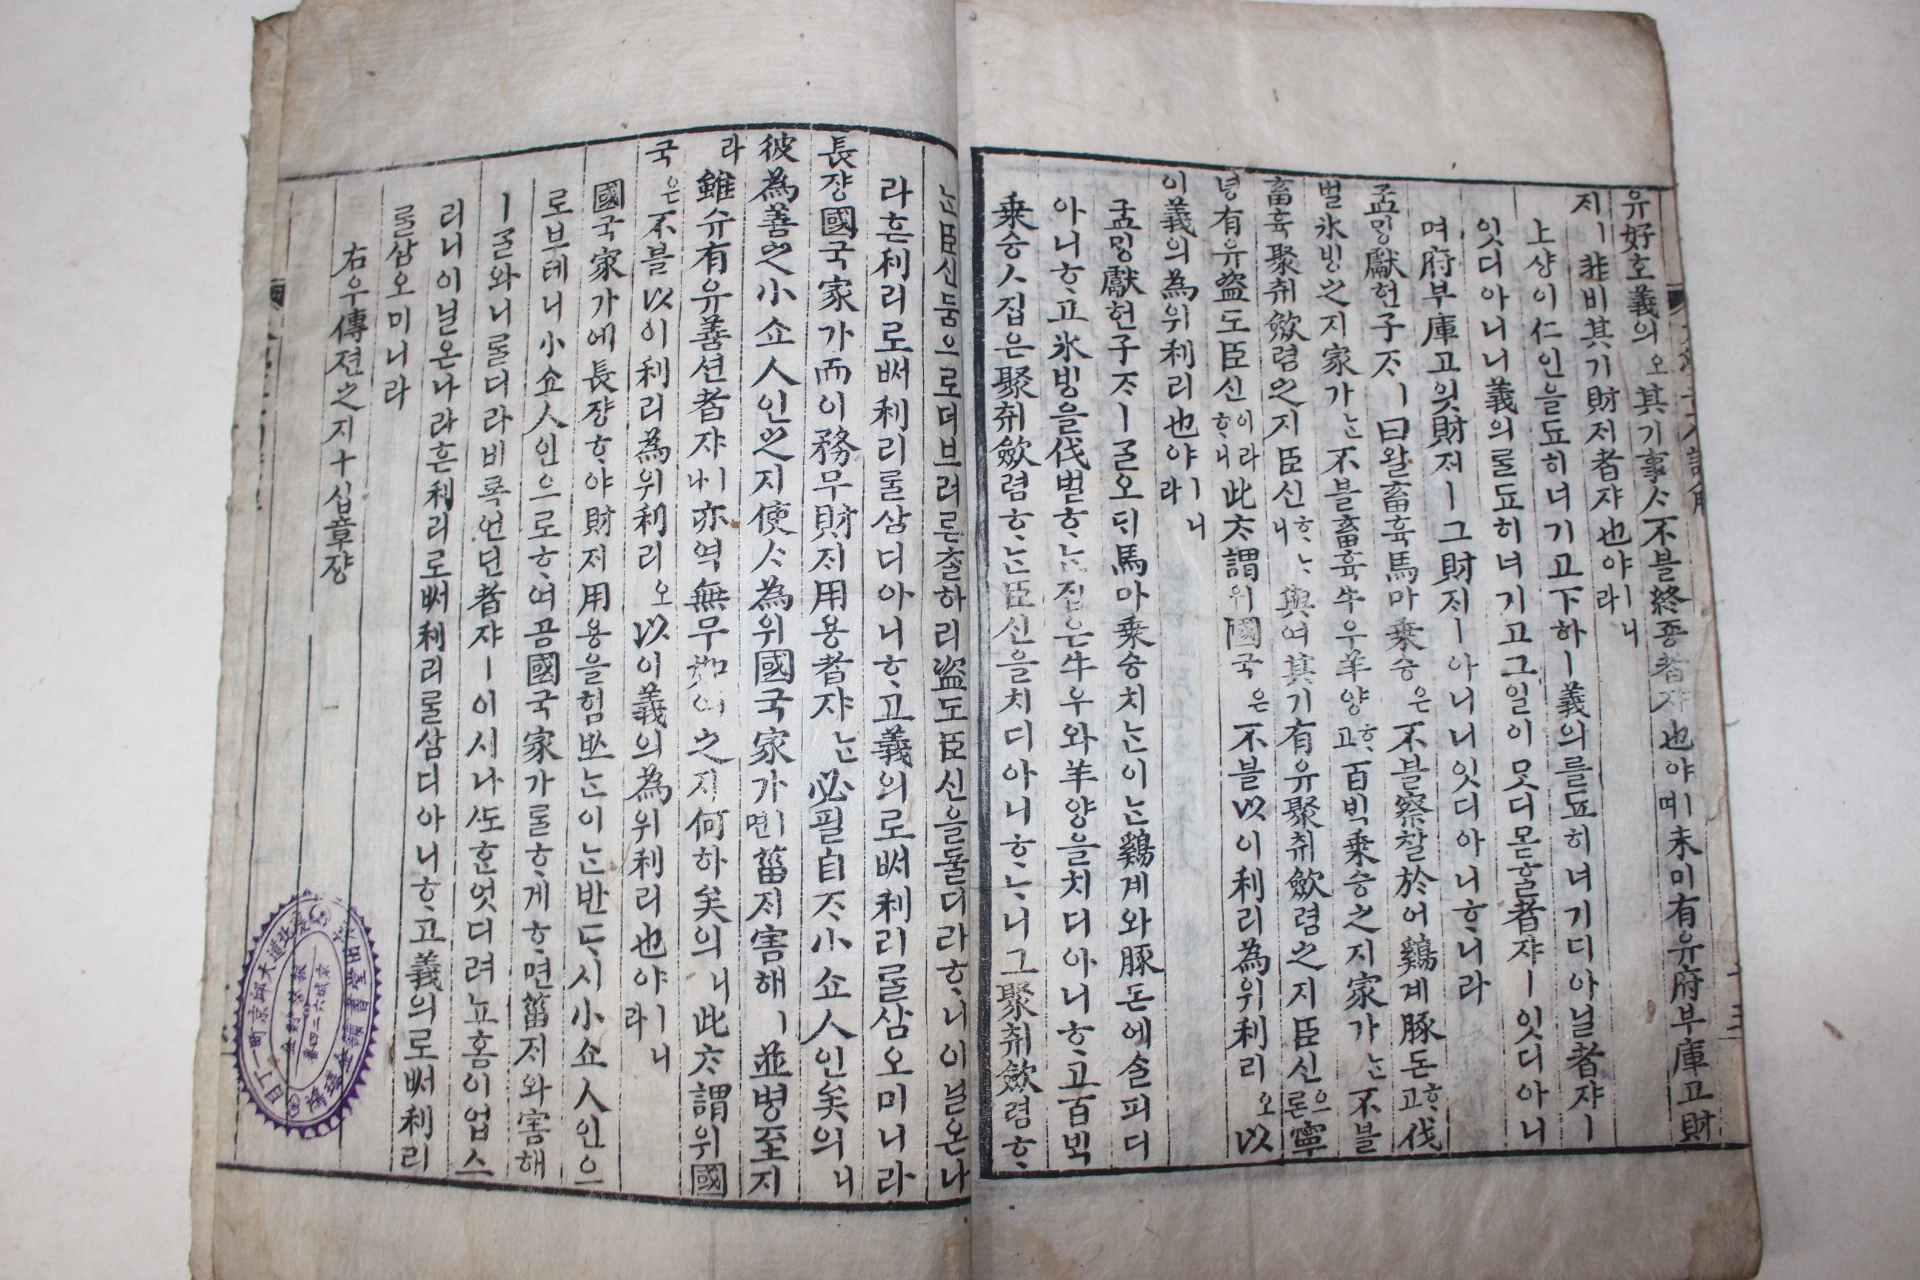 유好호義의오其기事ᄉᆞ不블終죵者쟈也야ㅣ며未미有유府부庫고財
ᄌᆡㅣ非비其기財ᄌᆡ者쟈也야ㅣ니라
上샹이仁인을됴히너기고下하ㅣ義의를됴히너기디아닐者쟈ㅣ
잇디아니니義의ᄅᆞᆯ됴히너기고그일이ᄆᆞᆺ디몯ᄒᆞᆯ者쟈ㅣ잇디아니
며府부庫고읫財ᄌᆡㅣ그財ᄌᆡㅣ아니니잇디아니ᄒᆞ니라
孟ᄆᆡᇰ獻헌子ᄌᆞㅣ曰왈畜휵馬마乘승은不블察찰於어鷄계豚돈ᄒᆞ고伐
벌氷빙之지家가ᄂᆞᆫ不블畜휵牛우羊양ᄒᆞ고百ᄇᆡᆨ乘승之지家가ᄂᆞᆫ不블
畜휵聚취斂렴之지臣신ᄒᆞᄂᆞ니與여其기有유聚취斂렴之지臣신으론寧
녕有유盜도臣신이라ᄒᆞ니此ᄎᆞ謂위國국은不블以이利리爲위利리오以
이義의爲위利리也야ㅣ니라
孟ᄆᆡᇰ獻헌子ᄌᆞㅣᄀᆞᆯ오ᄃᆡ馬마乘승치ᄂᆞᆫ이ᄂᆞᆫ鷄계와豚돈에ᄉᆞᆯ피디
아니ᄒᆞ고氷빙을伐벌ᄒᆞᄂᆞᆫ집은牛우와羊양을치디아니ᄒᆞ고百ᄇᆡᆨ
乘승ㅅ집은聚취斂렴ᄒᆞᄂᆞᆫ臣신을치디아니ᄒᆞᄂᆞ니그聚취斂렴ᄒᆞ
ᄂᆞᆫ臣신둠으로더브러론ᄎᆞᆯ하리盜도臣신을둘디라ᄒᆞ니이닐온나
라흔利리로ᄡᅥ利리ᄅᆞᆯ삼디아니ᄒᆞ고義의로ᄡᅥ利리ᄅᆞᆯ삼오미니라
長쟝國국家가而이務무財ᄌᆡ用용者쟈ᄂᆞᆫ必필自ᄌᆞ小쇼人인矣의니
彼爲善之小쇼人인之지使ᄉᆞ爲위國국家가ㅣ면菑ᄌᆡ害해ㅣ並병至지
라雖슈有유善션者쟈ㅣ나亦역無무如여之지何하矣의니此ᄎᆞ謂위國
국은不블以이利리爲위利리오以이義의爲위利리也야ㅣ니라
國국家가에長쟝ᄒᆞ야財ᄌᆡ用용을힘ᄡᅳᄂᆞᆫ이ᄂᆞᆫ반ᄃᆞ시小쇼人인으
로브테니小쇼人인으로ᄒᆞ여곰國국家가ᄅᆞᆯᄒᆞ게ᄒᆞ면菑ᄌᆡ와害해
ㅣᄀᆞᆯ와니ᄅᆞᆯ디라비록언던者쟈ㅣ이시나ᄯᅩᄒᆞᆫ엇디려뇨홈이업스
리니이닐온나라흔利리로ᄡᅥ利리ᄅᆞᆯ삼디아니ᄒᆞ고義의로ᄡᅥ利리
ᄅᆞᆯ삼오미니라
右우傳젼之지十십章쟝